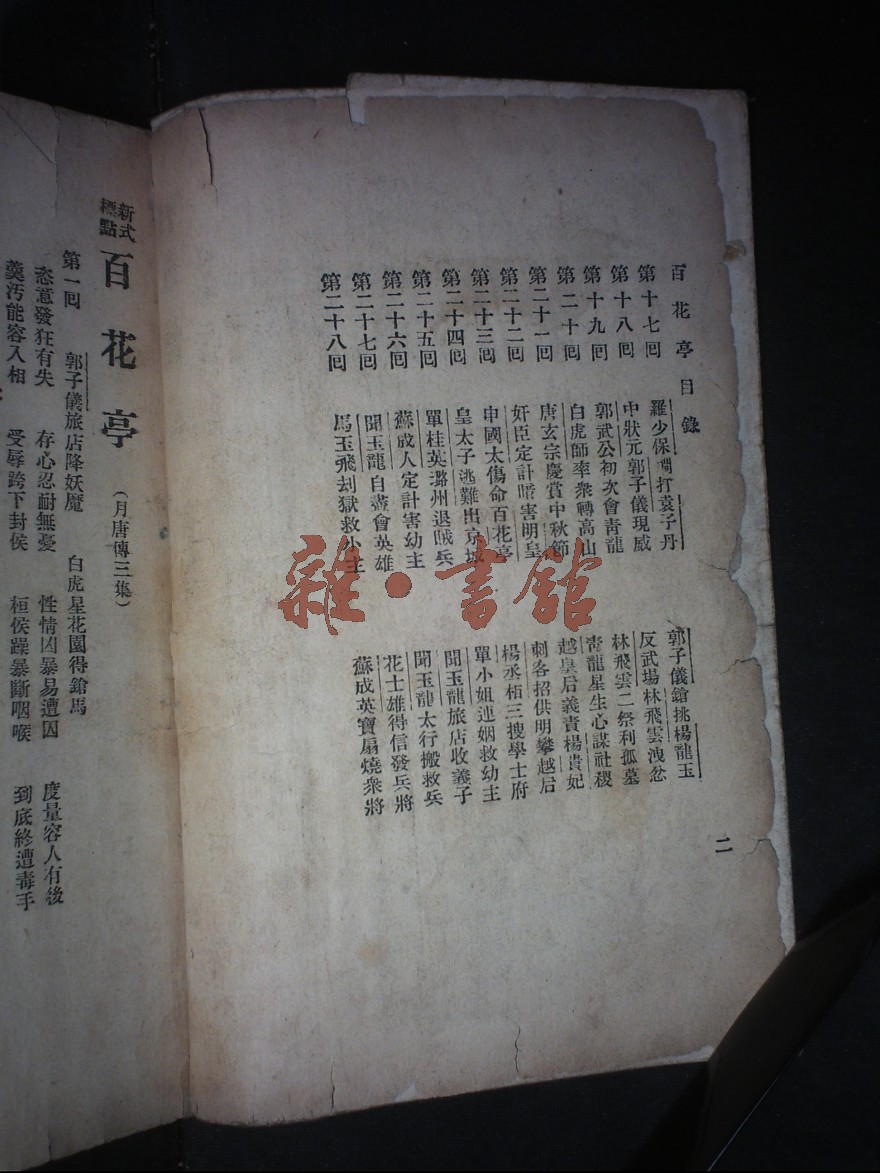 百花亭目錄
第十七回 羅少保𢵧打袁子丹 郭子儀鎗挑楊龍玉
第十八回 中狀元郭子儀現威 反武場林飛雲洩忿
第十九回 郭武公初次會靑龍 林飛雲二祭利孤墓
第二十回 白虎師率衆轉高山 靑龍星生心謀社稷
第二十一回 唐玄宗慶賞中秋節 越皇后義責楊貴妃
第二十二回 奸臣定計暗害明皇 刺客招供明攀越后
第二十三回 申國太傷命百花亭 楊丞栢三搜學士府
第二十四回 皇太子逃難出京城 單小姐連姻救幼主
第二十五回 單桂英潞州退賊兵 聞玉龍旅店收義子
第二十六回 蘇成人定計害幼主 聞玉龍太行搬救兵
第二十七回 聞玉龍自盡會英雄 花士雄得信發兵將
第二十八回 馬玉飛刦獄救小主 蘇成英寶扇燒衆將
二
新式標點 百花亭 (月唐傳三集)
第一回 郭子儀旅店降妖魔 白虎星花園得鎗馬
恣意發狂有失 存心忍耐無憂 性情凶暴易遭囚 度量容人有後
羹汚能容入相 受辱跨下封侯 桓侯躁暴斷咽喉 到底終遭毒手
雜·書館